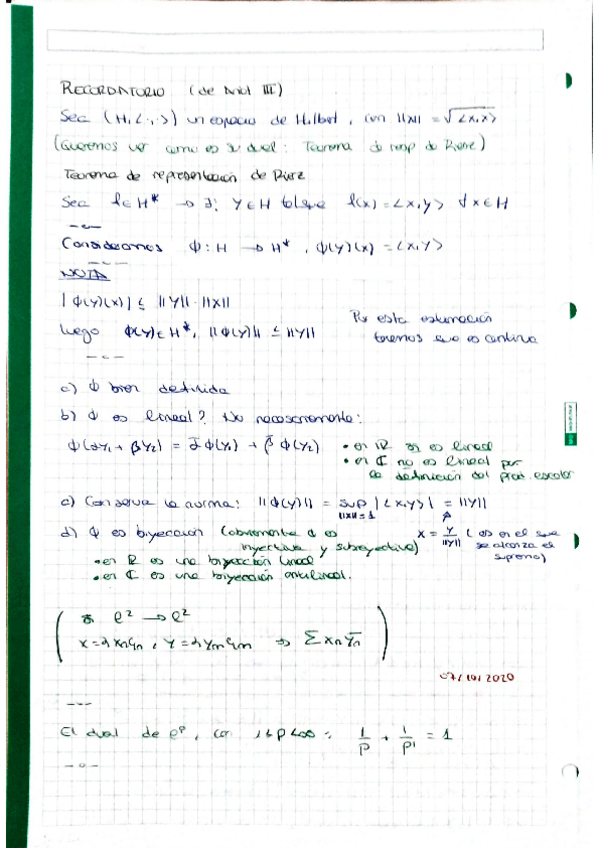 RECORDATORIO (de Anál III)
Sea (H, <·,·>) un espacio de Hilbert, con ||x|| = √<x,x>
(Queremos ver como es su dual: Teorema de rep de Riesz)
Teorema de representación de Riesz
Sea f ∈ H* → ∃! y ∈ H tal que f(x) = <x,y> ∀x ∈ H
Consideramos ϕ: H → H*, ϕ(y)(x) = <x,y>
NOTA
|ϕ(y)(x)| ≤ ||y|| · ||x||
Luego ϕ(y) ∈ H*, ||ϕ(y)|| ≤ ||y||
Por esta estimación
tenemos que es continua
a) ϕ bien definida
b) ϕ es lineal? No necesariamente:
ϕ(αy₁ + βy₂) = ᾱ ϕ(y₁) + β̄ ϕ(y₂)
• en ℝ sí es lineal
• en ℂ no es lineal por
la definición del prod. escalar
c) Conserva la norma: ||ϕ(y)|| = sup |<x,y>| = ||y||
||x||=1
x = y/||y|| (es en el que
se alcanza el
supremo)
d) ϕ es biyección (obviamente ϕ es
inyectiva y sobreyectiva)
• en ℝ es una biyección lineal
• en ℂ es una biyección antilineal.
ℓ² → ℓ²
Σ xₙ ȳₙ
07/10/2020
El dual de ℓᵖ, con 1<p<∞: 1/p + 1/p' = 1